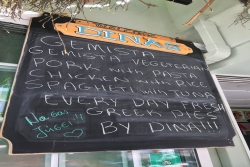 DINAS
GEMISTA
GEMISTA VEGETERIAN
PORK WITH PASTA
CHICKEN WITH RICE
SPAGHETI WITH TUNA
EVERY DAY FRESH
GREEK PIES
BY DINA!!!